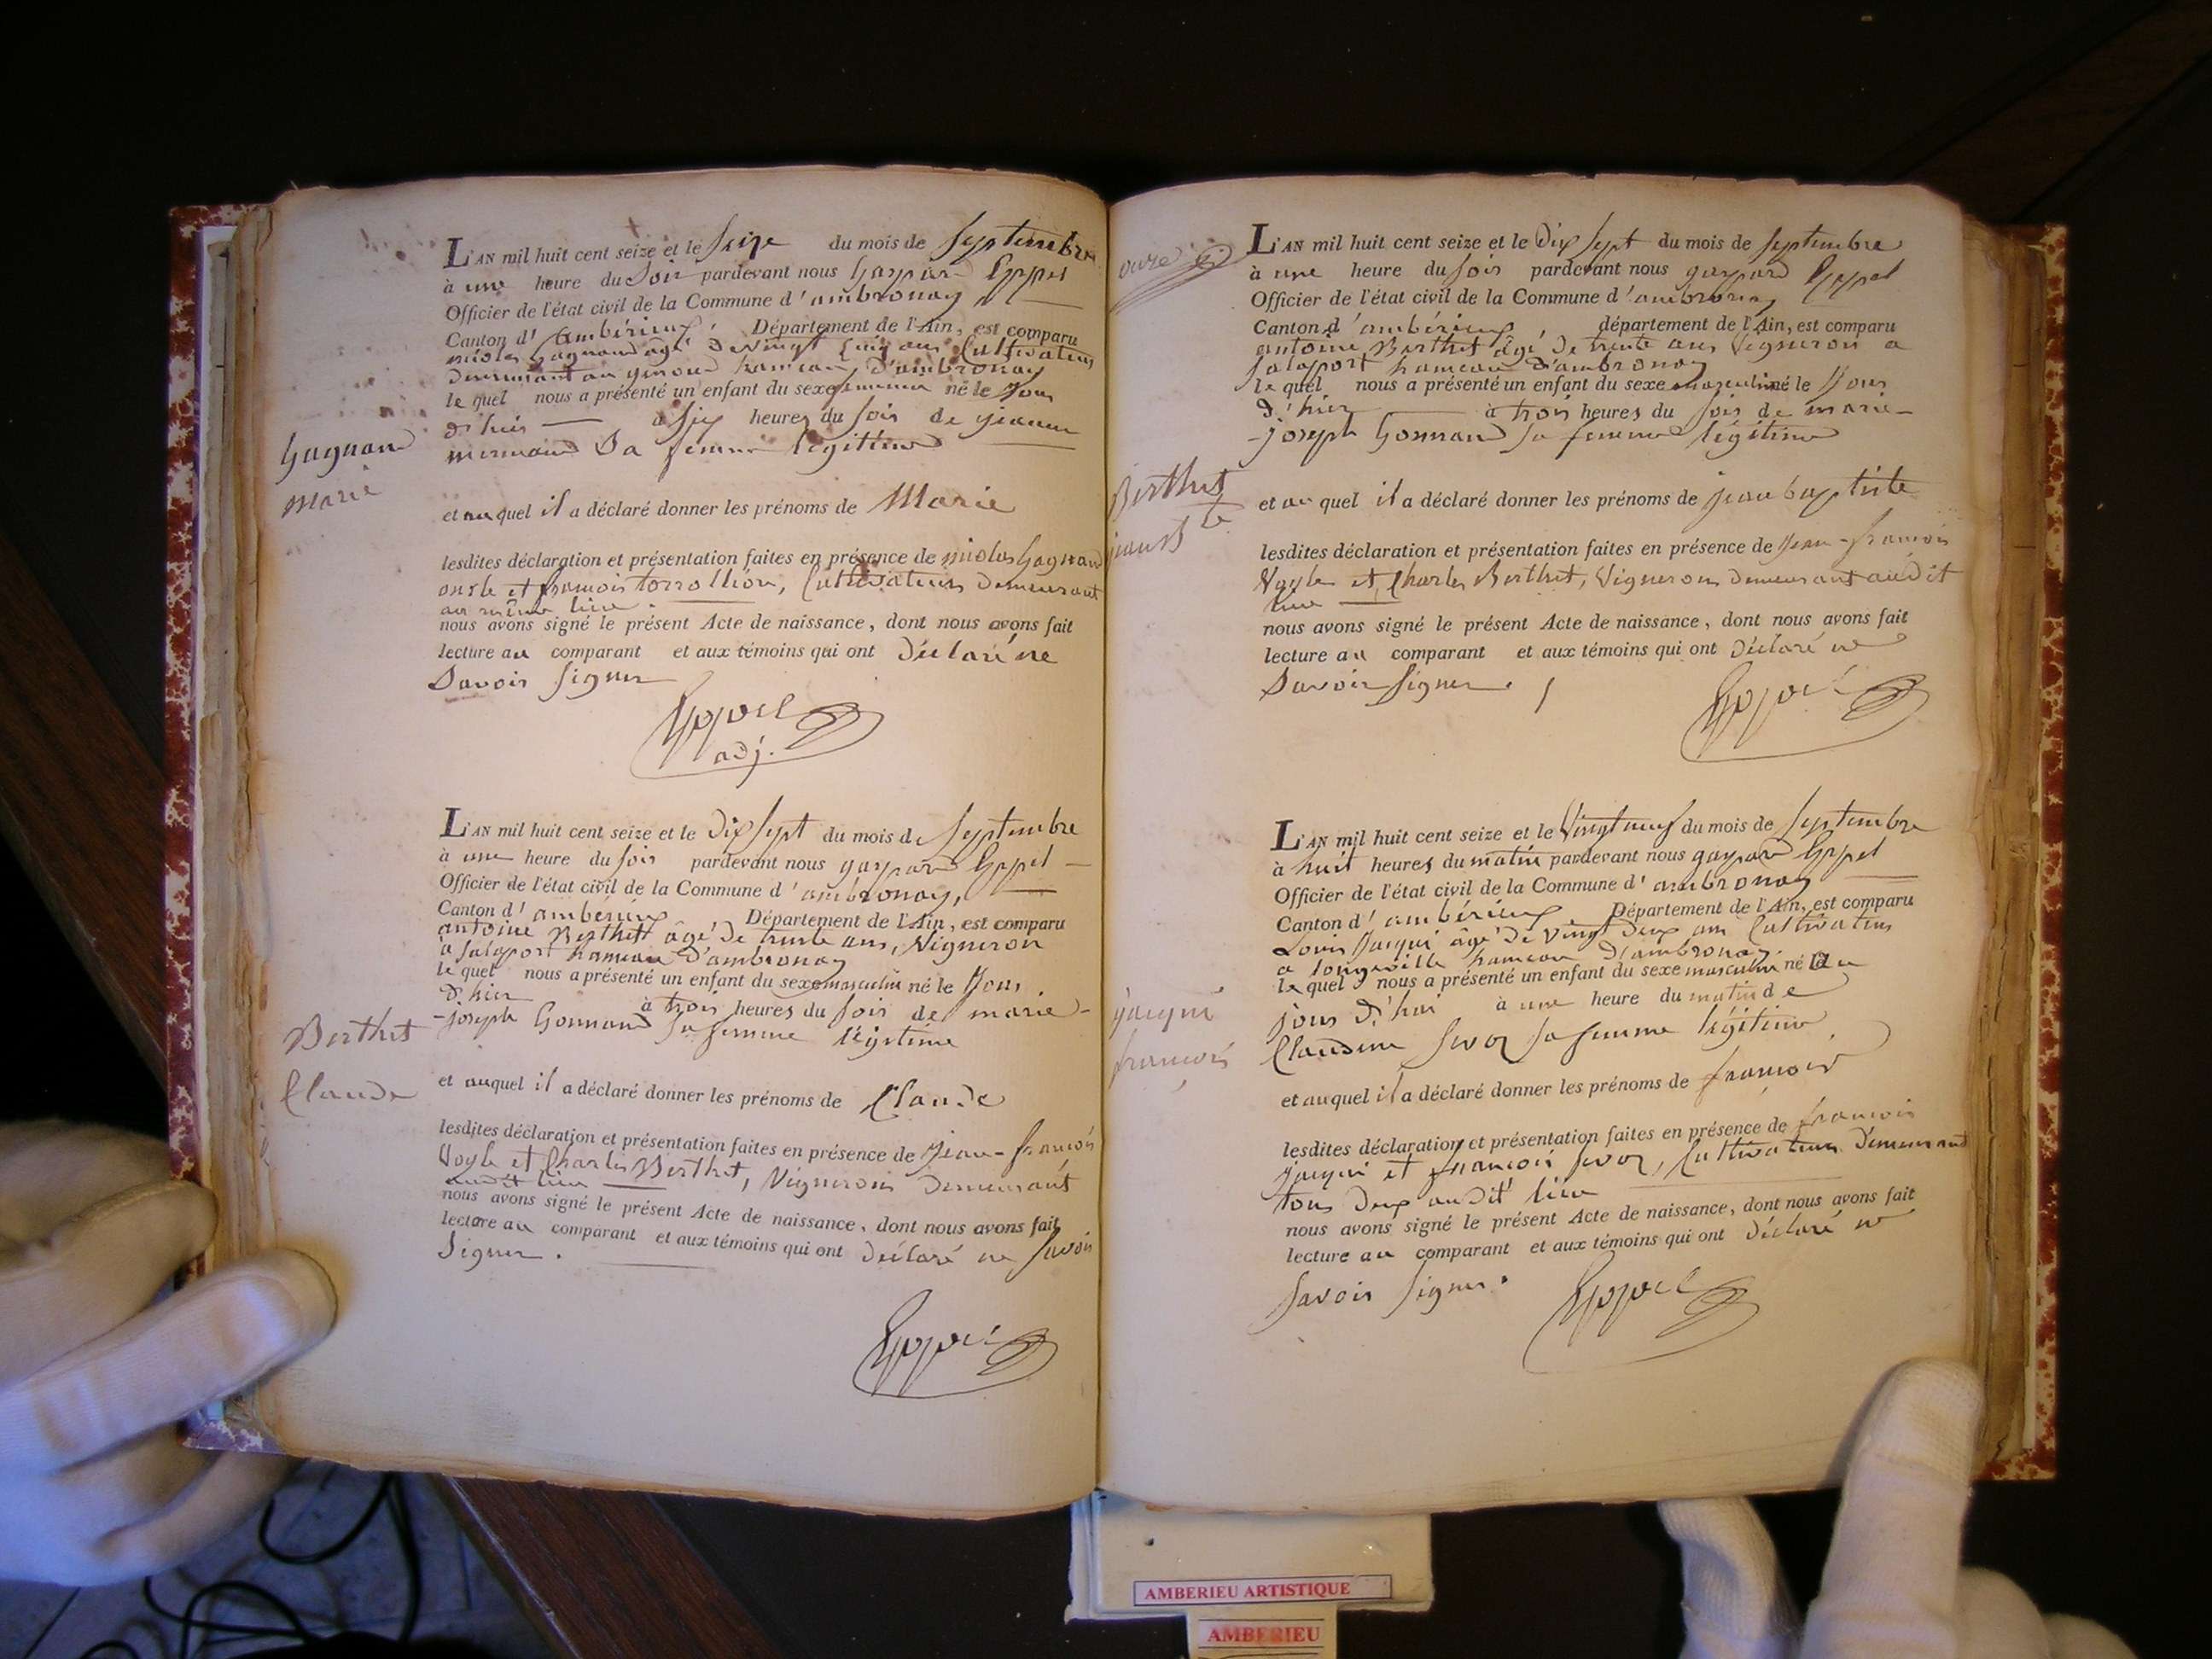 L'AN mil huit cent seize et le seize du mois de septembre
à une heure du soir pardevant nous Gaspard Eppel
Officier de l'état civil de la Commune d'ambronay
Canton d'ambérieux, Département de l'Ain, est comparu
nicolas Gagnand âgé de vingt cinq ans Cultivateur
demeurant au genoud hameau d'ambronay
le quel nous a présenté un enfant du sexe feminin né le jour
d'hier à six heures du soir de jeanne
mermand Sa femme légitime
Gagnand
marie
et au quel il a déclaré donner les prénoms de Marie
lesdites déclaration et présentation faites en présence de nicolas Gagnand
oncle et françois torrollion, Cultivateurs Demeurant
au même lieu.
nous avons signé le présent Acte de naissance, dont nous avons fait
lecture au comparant et aux témoins qui ont Déclaré ne
Savoir signer
Eppel
adj.
L'AN mil huit cent seize et le Dix sept du mois de septembre
à une heure du soir pardevant nous gaspard Eppel
Officier de l'état civil de la Commune d'ambronay,
Canton d'ambérieux, Département de l'Ain, est comparu
antoine Berthet âgé de trente ans, Vigneron
à Salaport hameau d'ambronay
le quel nous a présenté un enfant du sexe masculin né le jour
d'hier à trois heures du soir de marie-
-joseph Gonnand sa femme légitime
Berthet
Claude
et auquel il a déclaré donner les prénoms de Claude
lesdites déclaration et présentation faites en présence de Jean-françois
Vogle et Charles Berthet, Vignerons Demeurant
audit lieu
nous avons signé le présent Acte de naissance, dont nous avons fait
lecture au comparant et aux témoins qui ont Déclaré ne savoir
Signer.
Eppel
L'AN mil huit cent seize et le Dix sept du mois de septembre
à une heure du soir pardevant nous gaspard Eppel
Officier de l'état civil de la Commune d'ambronay
Canton d'ambérieux, département de l'Ain, est comparu
antoine Berthet âgé de trente ans Vigneron a
Salaport hameau d'ambronay
le quel nous a présenté un enfant du sexe masculin né le jour
d'hier à trois heures du soir de marie-
-joseph Gonnand sa femme légitime
Berthet
jean Bte
et au quel il a déclaré donner les prénoms de jean baptiste
lesdites déclaration et présentation faites en présence de Jean-françois
Vogle et Charles Berthet, Vignerons Demeurant audit
lieu
nous avons signé le présent Acte de naissance, dont nous avons fait
lecture au comparant et aux témoins qui ont Déclaré ne
Savoir signer.
Eppel
L'AN mil huit cent seize et le Vingt neuf du mois de septembre
à huit heures du matin pardevant nous gaspard Eppel
Officier de l'état civil de la Commune d'ambronay
Canton d'ambérieux, Département de l'Ain, est comparu
Louis Jacqui âgé de vingt deux ans Cultivateur
a longeville hameau d'ambronay
le quel nous a présenté un enfant du sexe masculin né au
jour d'hui à une heure du matin de
Claudine sevoz sa femme légitime
jacqui
françois
et auquel il a déclaré donner les prénoms de françois
lesdites déclaration et présentation faites en présence de françois
jacqui et françois sevoz, Cultivateurs Demeurand
tous deux audit lieu
nous avons signé le présent Acte de naissance, dont nous avons fait
lecture au comparant et aux témoins qui ont Déclaré ne
Savoir signer.
Eppel
AMBERIEU ARTISTIQUE
AMBERIEU